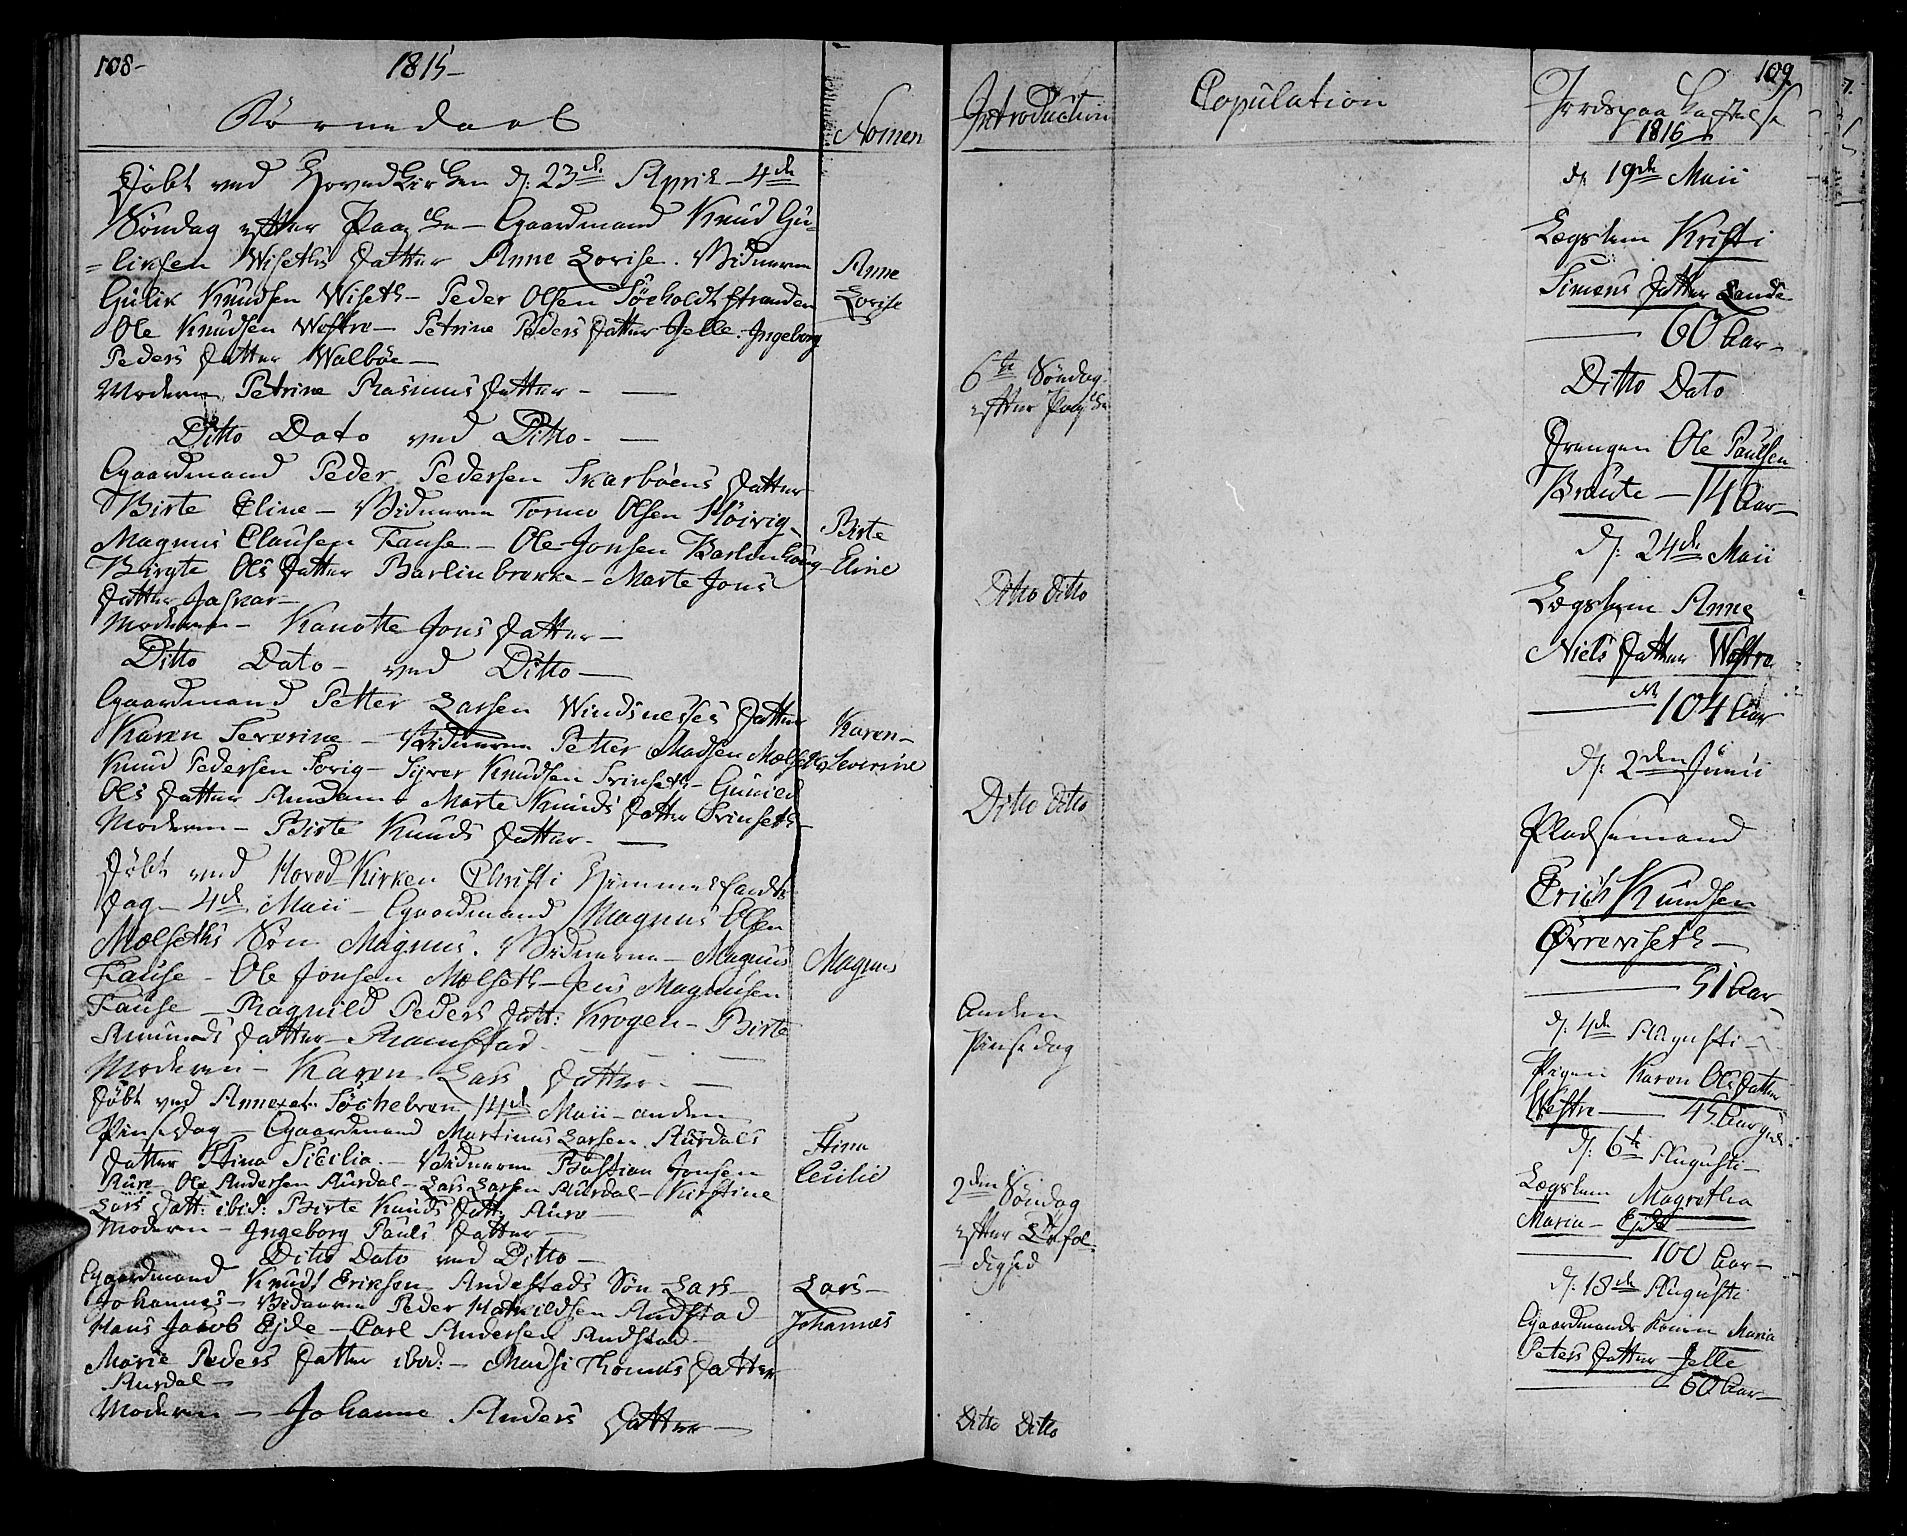 108-
1815-
Børnedaab
Nomen
Døbt ved Hovedkirken d: 23de April - 4de
Søndag efter Paaske - Gaardmand Knud Gu-
= liksen Wiseths Datter Anne Lovise. Vidnerne
Gulik Knudsen Wiseth - Peder Olsen Søeholdtstranden
Ole Knudsen Westre - Petrine Peders Datter Jelle. Ingeborg
Peders Datter Walbøe -
Moderen Petrine Rasmus Datter -
Anne
Lovise
Ditto Dato ved Ditto -
Gaardmand Peder Pedersen Skarbøens Datter
Birte Eline - Vidnerne Tormo Olsen Høivig -
Magnus Clausen Fause - Ole Jonsen Barlinhoug
Birgte Ols Datter Barlinbrekke - Marte Jons
Datter
Moderen - Kanotte Jons Datter -
Birte
Eline
Ditto Dato - ved Ditto -
Gaardmand Petter Larsen Windsnesses Datter
Karen Severine - Vidnerne Petter Madsen Mælseth
Knud Pedersen Sovig - Syver Knudsen Svinseth - Gunild
Ols Datter Amdam - Marte Knuds Datter Svinseth -
Moderen - Birte Knuds Datter -
Karen -
Severine
Døbt ved Hoved Kirken Christi Himmelfarts
Dag - 4de Maii - Gaardmand Magnus Olsen
Mælseths Søn Magnus. Vidnerne - Magnus
Fause - Ole Jonsen Mælseth - Jens Magnusen
Fause - Ragnild Peders Datt: Krogen - Birte
Amunds Datter Ramstad -
Moderen - Karen Lars Datter -
Magnus
Døbt ved Annexet Søchelven 14de Maii - anden
Pinsedag - Gaardmand Martinus Larsen Aurdals
Datter Stina Sicilia - Vidnerne Bastian Jonsen
Aure - Ole Andersen Aurdal - Lars Larsen Aurdal - Kirstine
Lars Datt: ibid: Birte Knuds Datt: Aure -
Moderen - Ingeborg Pauls Datter -
Stina
Cecilie
Ditto Dato ved Ditto -
Gaardmand Knud Eriksen Andestads Søn Lars -
Johannes - Vidnerne Peder Andstad
Hans Jacob Ejde - Carl Andersen Andstad -
Marie Peders Datter ibid: - Madsi Thomas Datter
Aurdal -
Moderen - Johanne Anders Datter -
Lars -
Johannes
Introduction
6te Søndag
efter Paaske
Ditto Ditto
Ditto Ditto
Anden
Pinsedag
2den Søndag
efter Trefol-
- dighed
Ditto Ditto
Copulation
109
Jordspaa Kastelse
1816
d: 19de Maii
Lægslem Kristi
Simens Datter Lande
60 Aar -
Ditto Dato
Drengen Ole Paulsen
Braute - 14 Aar -
d: 24de Maii
Lægslem Anne
Niels Datter Westre
104 Aar
d: 2den Junii
Pladsemand
Erich Knudsen
Øvreviseth -
51 Aar
d: 4de Augusti -
Pigen Karen Ols Datter
Westre - 45 Aar
d: 6te Augusti -
Lægslem Magretha
Maria - Ejde
100 Aar -
d: 18de Augusti
Gaardmands Konen Maria
Peters Datter Jelle
60 Aar -